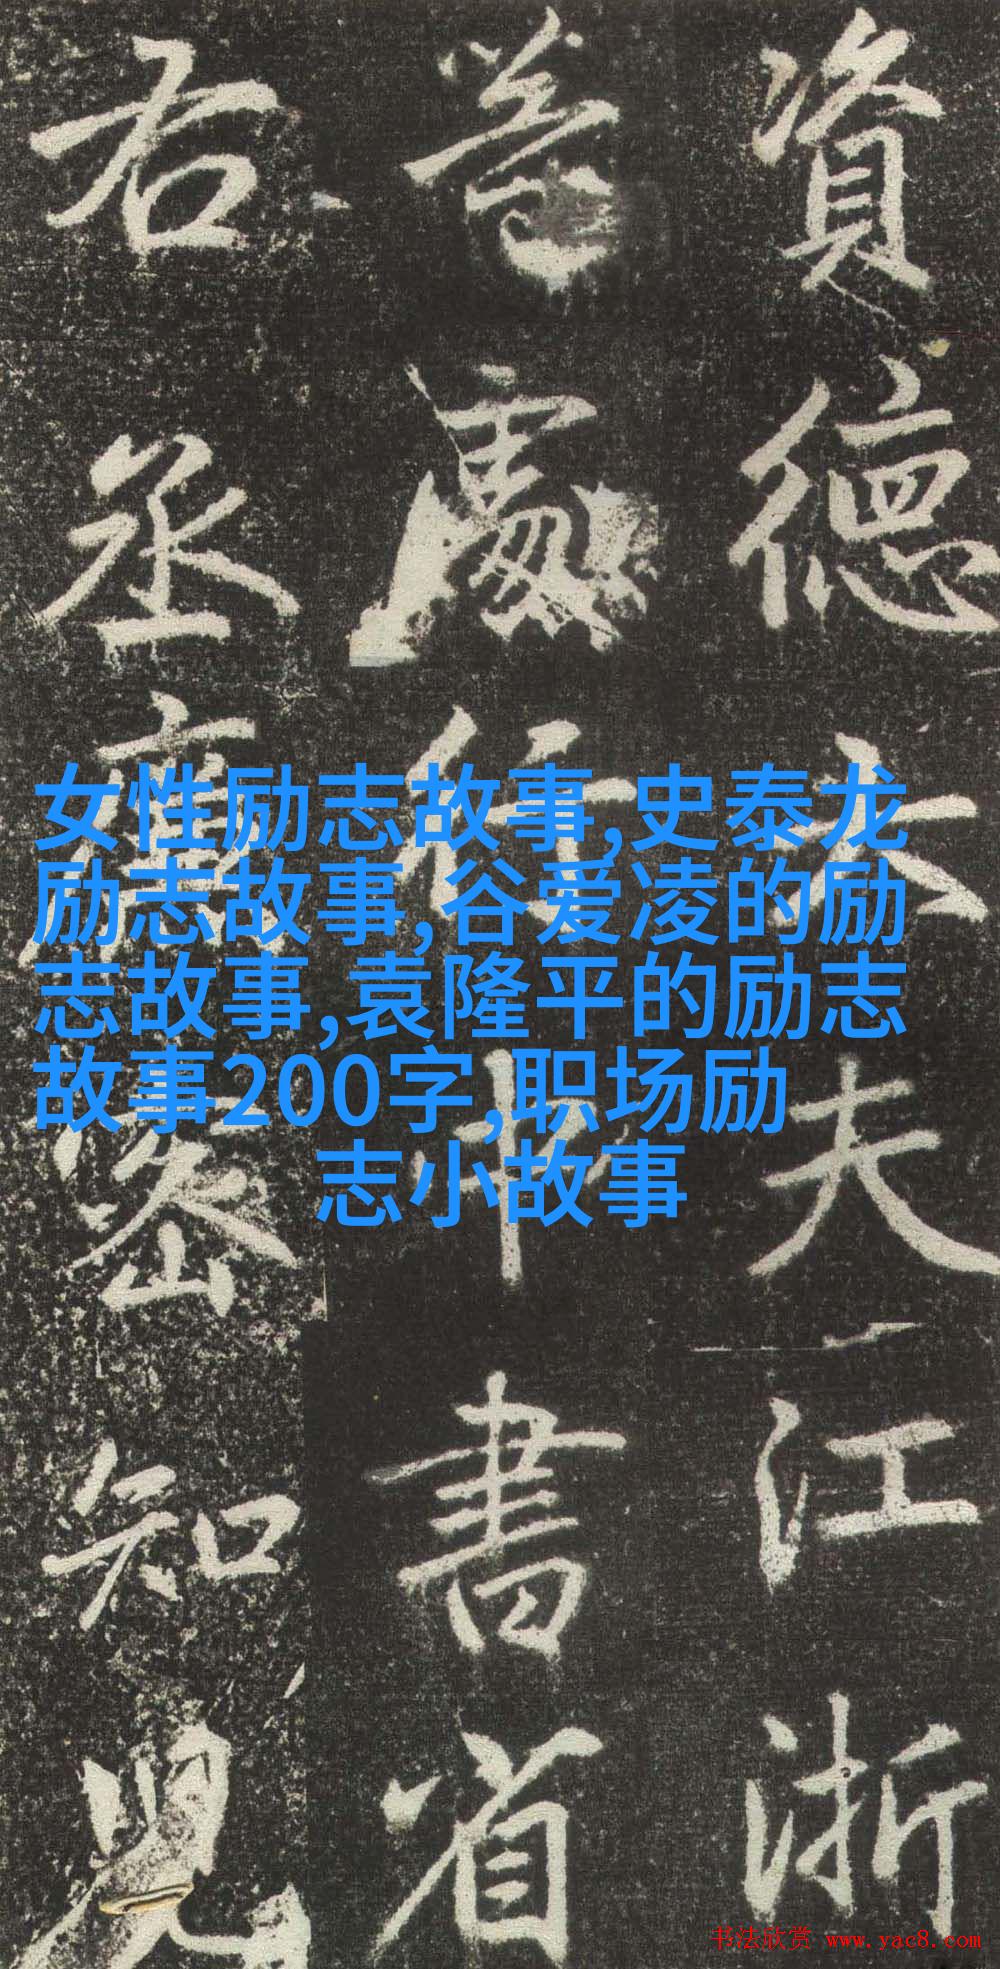 資德大夫江浙
等處行中書省
右丞廉密知兒
女性励志故事,史泰龙
励志故事,谷爱凌的励
志故事,袁隆平的励志
故事200字,职场励
志小故事
书法欣赏 www.yac8.com